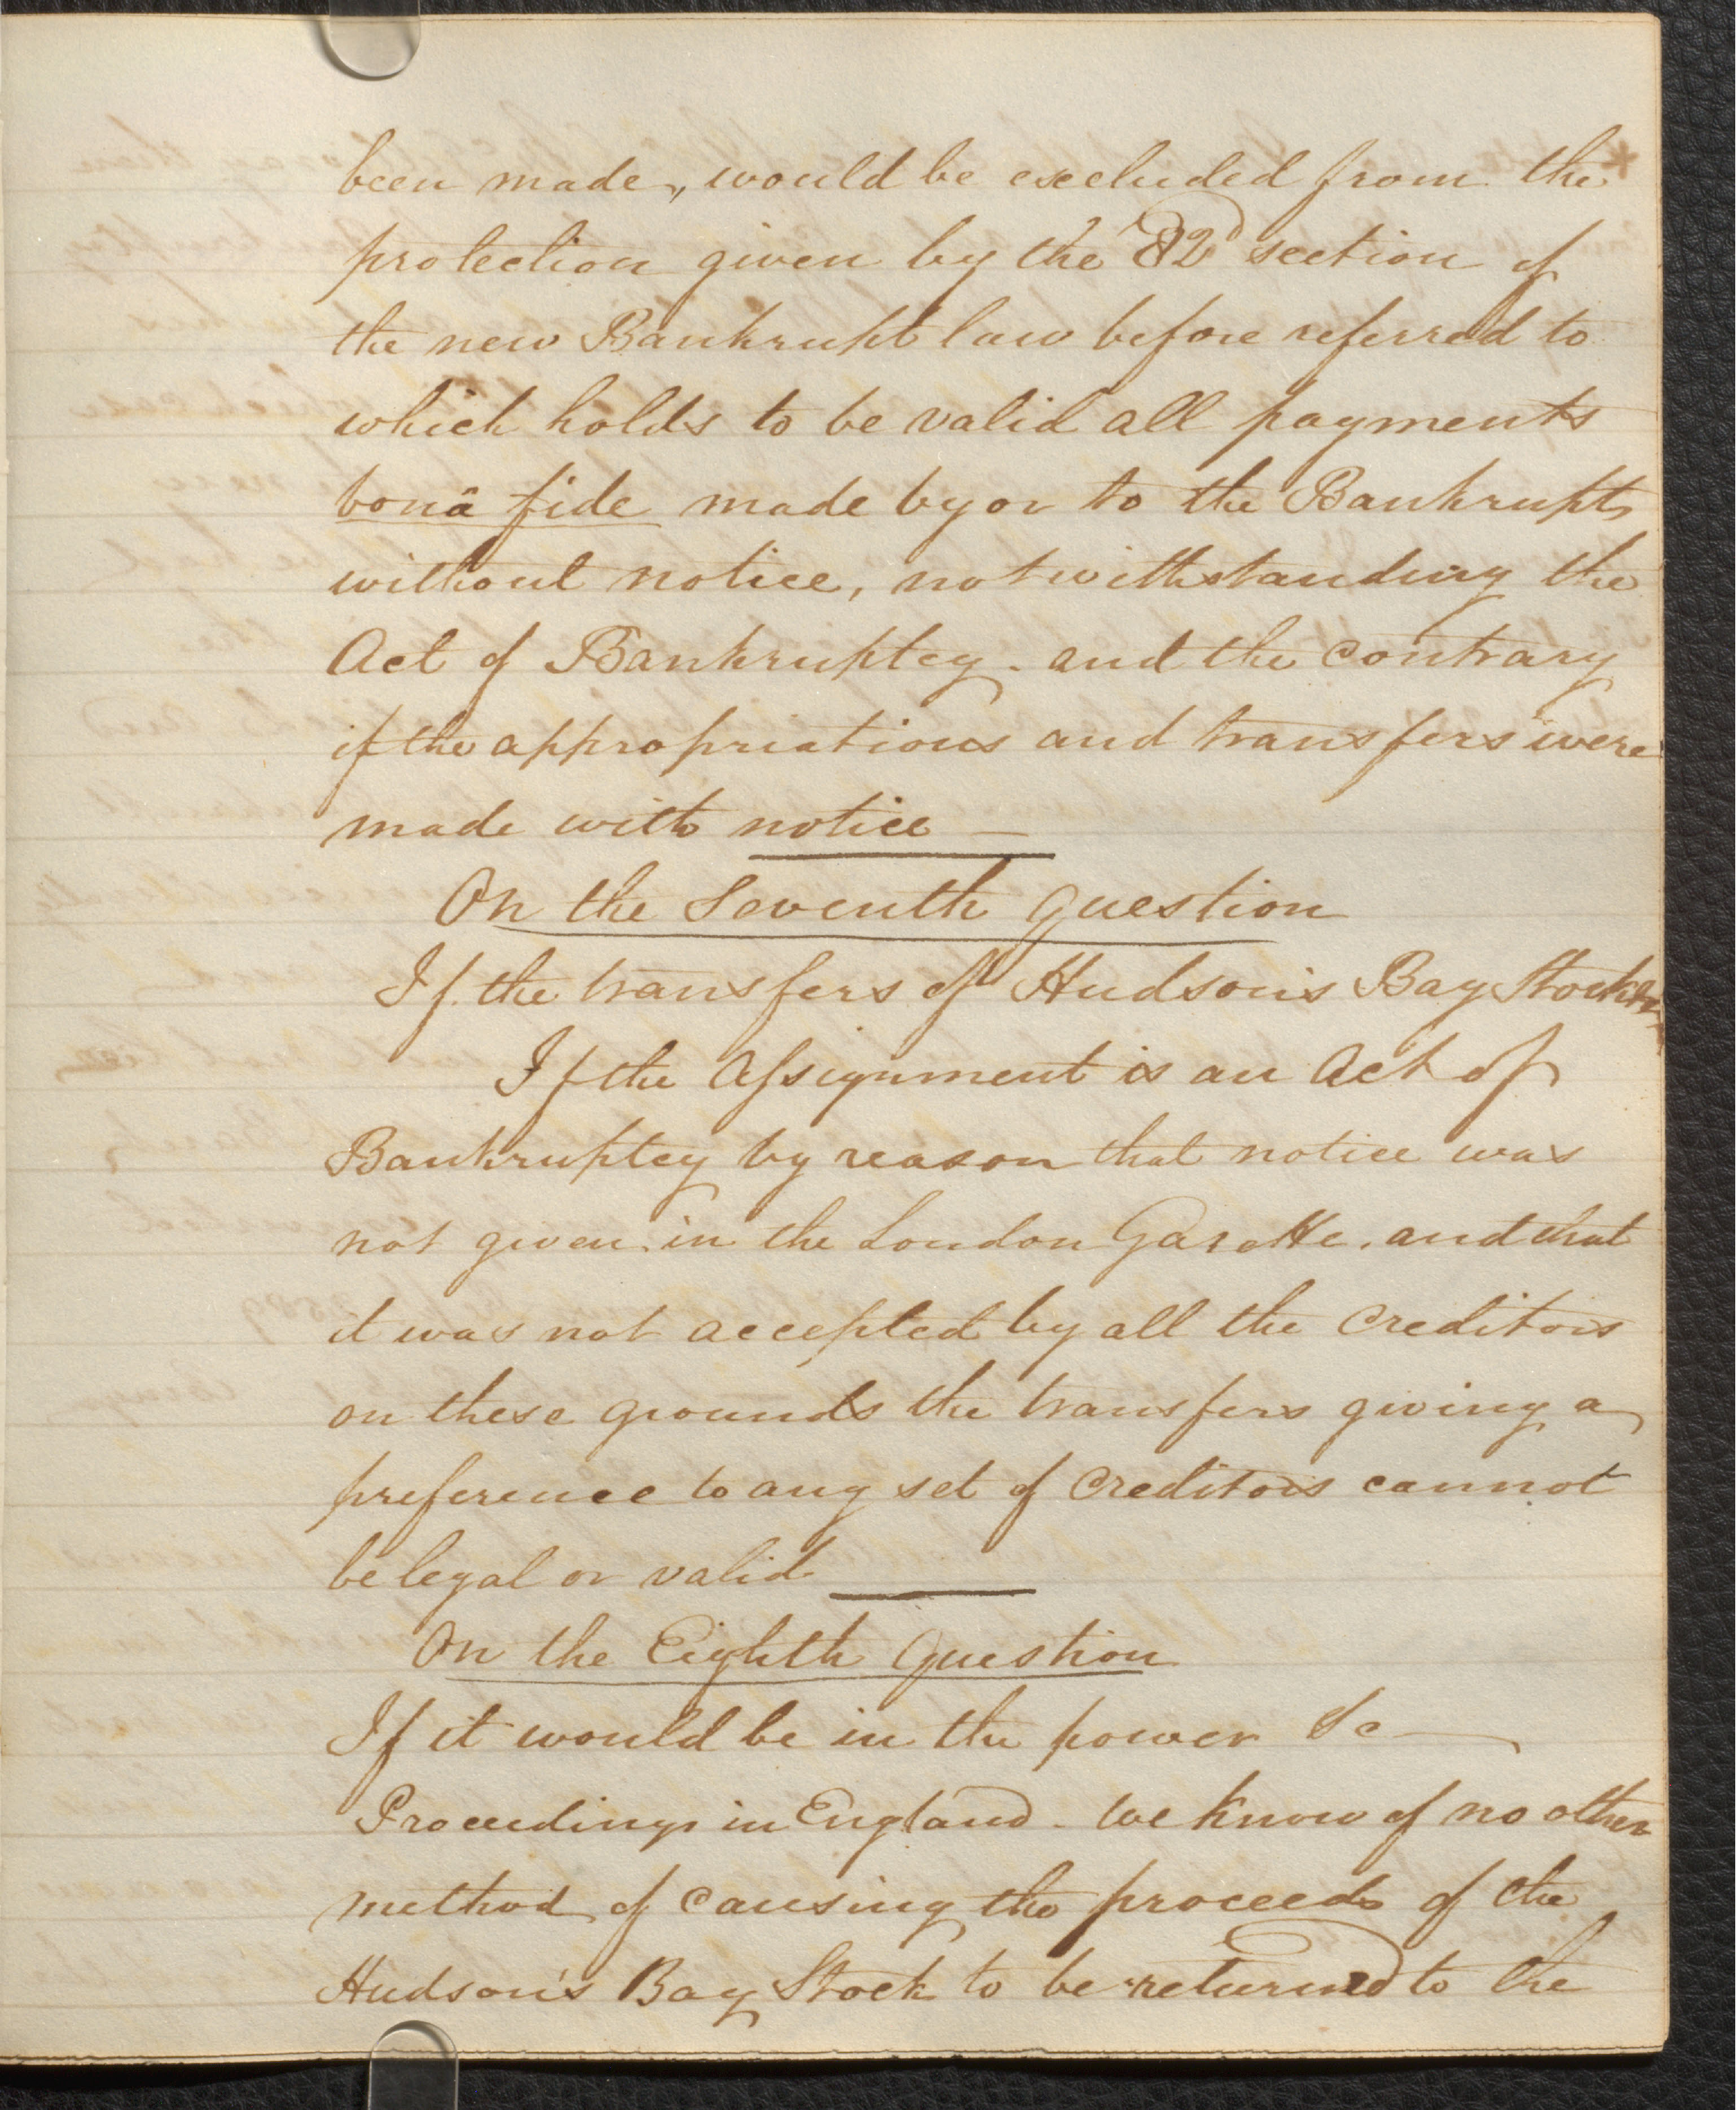 been made, would be excluded from the
protection given by the 82d section of
the new Bankrupt law before referred to
which holds to be valid all payments
bonâ fide made by or to the Bankrupts
without notice, notwithstanding the
Act of Bankruptcy - and the contrary
if the appropriations and transfers were
made with notice —
On the Seventh Question
If the transfers of Hudson's Bay Stock
If the Assignment is an Act of
Bankruptcy by reason that notice was
not given in the London Gazette, and that
it was not accepted by all the Creditors
on these grounds the transfers giving a
preference to any set of Creditors cannot
be legal or valid
On the Eighth Question
If it would be in the power &c —
Proceedings in England - we know of no other
method of causing the proceeds of the
Hudson's Bay Stock to be returned to the